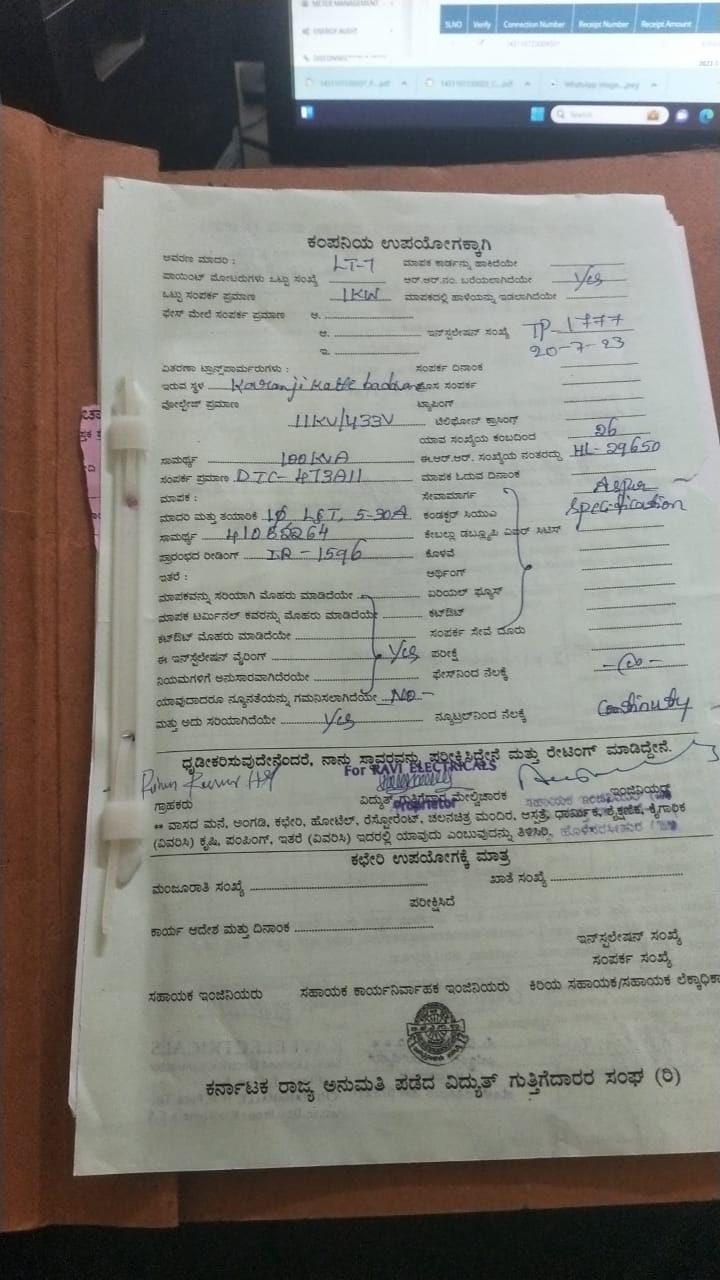 METER MANAGEMENT
ENERGY AUDIT
SLNO Verify Connection Number Receipt Number Receipt Amount
Search
ಕಂಪನಿಯ ಉಪಯೋಗಕ್ಕಾಗಿ
ಆವರಣ ಮಾದರಿ : LT-7 ಮಾಪಕ ಕಾರ್ಡನ್ನು ಹಾಕಿದೆಯೇ
ಪಾಯಿಂಟ್ ಮೋಟರುಗಳು ಒಟ್ಟು ಸಂಖ್ಯೆ ಆರ್.ಆರ್.ನಂ. ಬರೆಯಲಾಗಿದೆಯೇ Yes
ಒಟ್ಟು ಸಂಪರ್ಕ ಪ್ರಮಾಣ 1KW ಮಾಪಕದಲ್ಲಿ ಹಾಳೆಯನ್ನು ಇಡಲಾಗಿದೆಯೇ
ಫೇಸ್ ಮೇಲೆ ಸಂಪರ್ಕ ಪ್ರಮಾಣ ಅ.
ಆ. ಇನ್‌ಸ್ಟಲೇಷನ್ ಸಂಖ್ಯೆ TP-1777
ಇ. 20-7-23
ವಿತರಣಾ ಟ್ರಾನ್ಸ್‌ಪಾರ್ಮರುಗಳು : ಸಂಪರ್ಕ ದಿನಾಂಕ
ಇರುವ ಸ್ಥಳ Karanji Katte ಹೊಸ ಸಂಪರ್ಕ
ವೋಲ್ಟೇಜ್ ಪ್ರಮಾಣ ಟ್ಯಾಪಿಂಗ್
11KV/433V ಟೆಲಿಫೋನ್ ಕ್ರಾಸಿಂಗ್
ಯಾವ ಸಂಖ್ಯೆಯ ಕಂಬದಿಂದ 26
ಸಾಮರ್ಥ್ಯ 100KVA ಈ.ಆರ್.ಆರ್. ಸಂಖ್ಯೆಯ ನಂತರದ್ದು HL-29650
ಸಂಪರ್ಕ ಪ್ರಮಾಣ DTC-473A11 ಮಾಪಕ ಓದುವ ದಿನಾಂಕ
ಮಾಪಕ : ಸೇವಾಮಾರ್ಗ Asper
ಮಾದರಿ ಮತ್ತು ತಯಾರಿಕೆ 1Φ L&T, 5-30A ಕಂಡಕ್ಟರ್ ಸಿಯುಎ Specification
ಸಾಮರ್ಥ್ಯ ಕೇಬಲ್ಲು ಡಬ್ಲ್ಯೂಪಿ ಏಪರ್ ಸಿಟಿಸ್
ಪ್ರಾರಂಭದ ರೀಡಿಂಗ್ IR-1596 ಕೊಳವೆ
ಇತರೆ : ಆರ್ಥಿಂಗ್
ಮಾಪಕವನ್ನು ಸರಿಯಾಗಿ ಮೊಹರು ಮಾಡಿದೆಯೇ ಏರಿಯಲ್ ಫ್ಯೂಸ್
ಮಾಪಕ ಟರ್ಮಿನಲ್ ಕವರನ್ನು ಮೊಹರು ಮಾಡಿದೆಯೇ ಕಟ್‌ಔಟ್
ಕಟ್‌ಔಟ್ ಮೊಹರು ಮಾಡಿದೆಯೇ ಸಂಪರ್ಕ ಸೇವೆ ದೂರು
ಈ ಇನ್‌ಸ್ಟಲೇಷನ್ ವೈರಿಂಗ್ Yes ಪರೀಕ್ಷೆ
ನಿಯಮಗಳಿಗೆ ಅನುಸಾರವಾಗಿದೆಯೇ ಫೇಸ್‌ನಿಂದ ನೆಲಕ್ಕೆ
ಯಾವುದಾದರೂ ನ್ಯೂನತೆಯನ್ನು ಗಮನಿಸಲಾಗಿದೆಯೇ No-
ಮತ್ತು ಅದು ಸರಿಯಾಗಿದೆಯೇ Yes ನ್ಯೂಟ್ರಲ್‌ನಿಂದ ನೆಲಕ್ಕೆ Continuty
ಧೃಡೀಕರಿಸುವುದೇನೆಂದರೆ, ನಾನು ಸ್ಥಾವರವನ್ನು ಪರೀಕ್ಷಿಸಿದ್ದೇನೆ ಮತ್ತು ರೇಟಿಂಗ್ ಮಾಡಿದ್ದೇನೆ.
For RAVI ELECTRICALS
Proprietor
ಗ್ರಾಹಕರು ವಿದ್ಯುತ್ ಗುತ್ತಿಗೆದಾರ ಮೇಲ್ವಿಚಾರಕ ಇಂಜಿನಿಯರ್
** ವಾಸದ ಮನೆ, ಅಂಗಡಿ, ಕಛೇರಿ, ಹೋಟೆಲ್, ರೆಸ್ಟೋರೆಂಟ್, ಚಲನಚಿತ್ರ ಮಂದಿರ, ಆಸ್ಪತ್ರೆ, ಧಾರ್ಮಿಕ, ಶೈಕ್ಷಣಿಕ, ಕೈಗಾರಿಕ
(ವಿವರಿಸಿ) ಕೃಷಿ, ಪಂಪಿಂಗ್, ಇತರೆ (ವಿವರಿಸಿ) ಇದರಲ್ಲಿ ಯಾವುದು ಎಂಬುವುದನ್ನು ತಿಳಿಸಿರಿ.
ಕಛೇರಿ ಉಪಯೋಗಕ್ಕೆ ಮಾತ್ರ
ಮಂಜೂರಾತಿ ಸಂಖ್ಯೆ ಖಾತೆ ಸಂಖ್ಯೆ
ಪರೀಕ್ಷಿಸಿದೆ
ಕಾರ್ಯ ಆದೇಶ ಮತ್ತು ದಿನಾಂಕ
ಇನ್‌ಸ್ಟಲೇಷನ್ ಸಂಖ್ಯೆ
ಸಂಪರ್ಕ ಸಂಖ್ಯೆ
ಸಹಾಯಕ ಇಂಜಿನಿಯರು ಸಹಾಯಕ ಕಾರ್ಯನಿರ್ವಾಹಕ ಇಂಜಿನಿಯರು ಕಿರಿಯ ಸಹಾಯಕ/ಸಹಾಯಕ ಲೆಕ್ಕಾಧಿಕಾ
ಕರ್ನಾಟಕ ರಾಜ್ಯ ಅನುಮತಿ ಪಡೆದ ವಿದ್ಯುತ್ ಗುತ್ತಿಗೆದಾರರ ಸಂಘ (ರಿ)